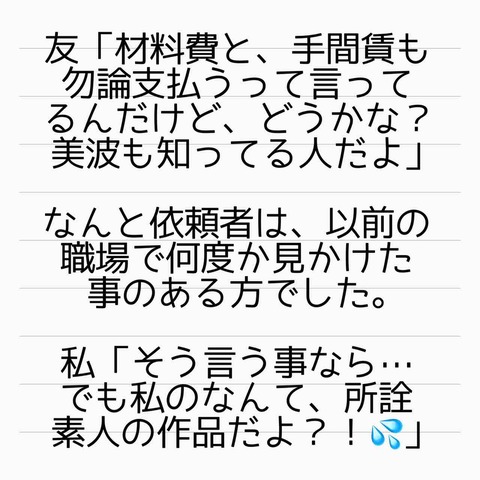 友「材料費と、手間賃も
勿論支払うって言って
るんだけど、どうかな？
美波も知ってる人だよ」
なんと依頼者は、以前の
職場で何度か見かけた
事のある方でした。
私「そう言う事なら…
でも私のなんて、所詮
素人の作品だよ？！💦」